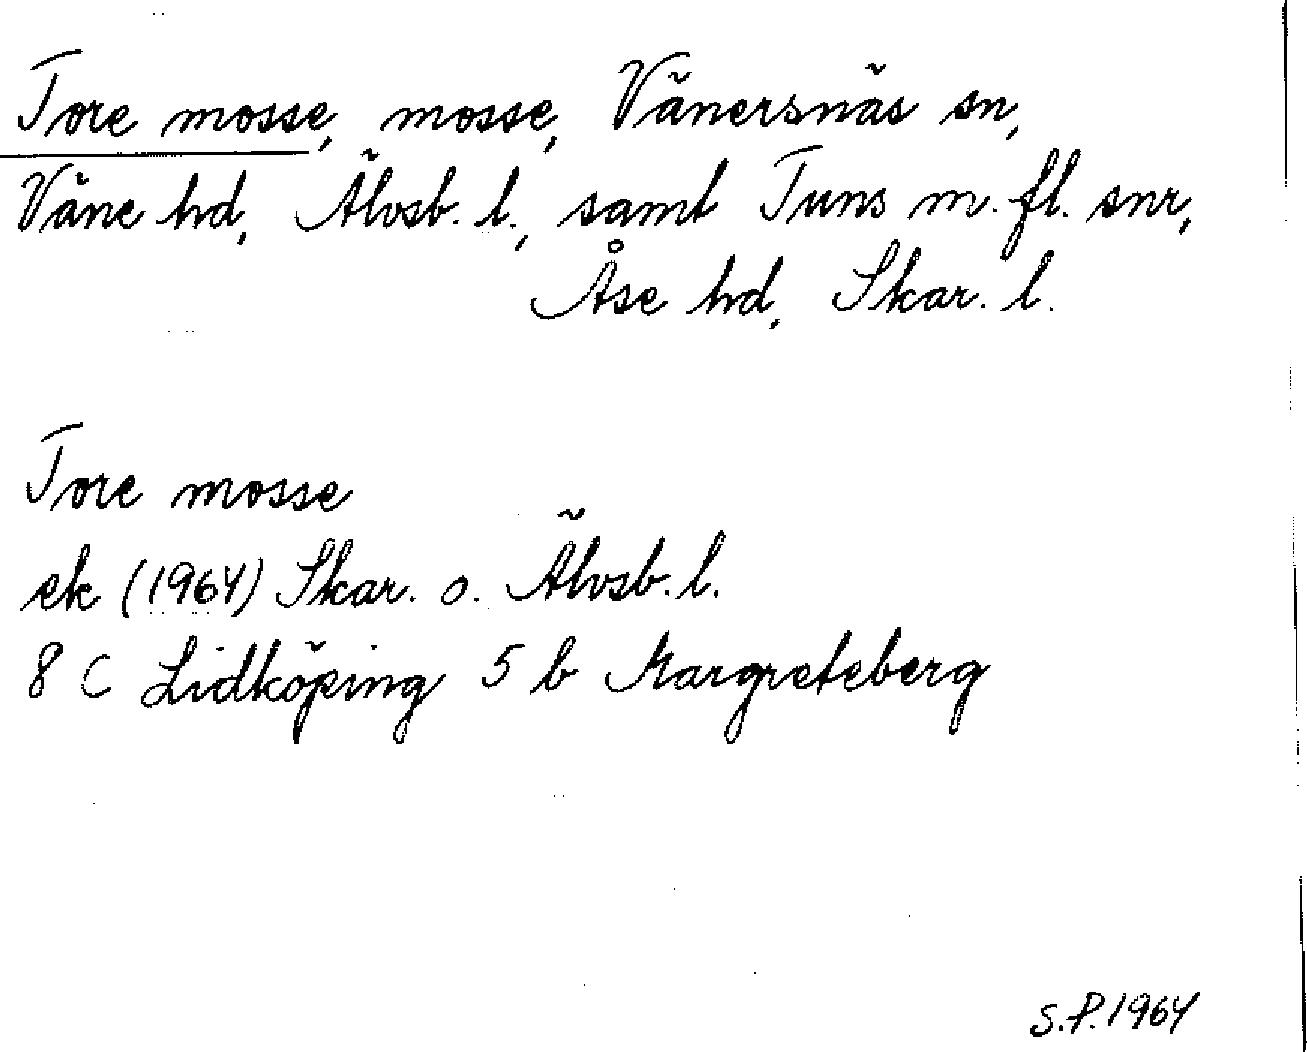 Tore mosse, mosse, Vänersnäs sn,
Väne hd, Älvsb. l., samt Tuns m. fl. snr,
Åse hd, Skar. l.
Tore mosse
ek (1964) Skar. o. Älvsb. l.
8 C Lidköping 5 b Margreteberg
S.P. 1964